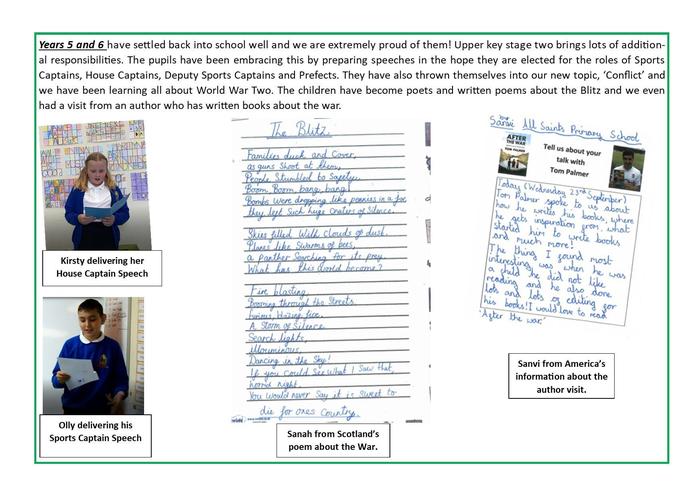 Years 5 and 6 have settled back into school well and we are extremely proud of them! Upper key stage two brings lots of addition-
al responsibilities. The pupils have been embracing this by preparing speeches in the hope they are elected for the roles of Sports
Captains, House Captains, Deputy Sports Captains and Prefects. They have also thrown themselves into our new topic, ‘Conflict’ and
we have been learning all about World War Two. The children have become poets and written poems about the Blitz and we even
had a visit from an author who has written books about the war.
Kirsty delivering her
House Captain Speech
Olly delivering his
Sports Captain Speech
The Blitz
Families duck and Cover,
as guns Shoot at them,
People Stumbled to Safety.
Boom, Boom, bang, bang!
Bombs were dropping like pennies in a
they left Such huge Craters of Silence.
Skies filled With clouds of dust.
Planes like Swarms of bees,
a Panther Searching for its prey.
What has this World become?
Fire blasting,
Booming through the Streets.
Furious, blazing fire.
A Storm of Silence
Search lights,
Dancing in the Sky!
If you Could See What I Saw that
night.
You Would never Say it is Sweet to
die for ones Country.
Sanah from Scotland’s
poem about the War.
Sanvi All Saints Primary School
AFTER
THE WAR
TOM PALMER
Tell us about your
talk with
Tom Palmer
Today (Wednesday 23rd September)
Tom Palmer spoke to us about
how he writes his books, where
he gets inspiration from, what
started him to write books
and much more!
The thing I found most
interesting was when he was
a child he did not like
reading and he also done
lots and lots of editing for
his books! I would love to read
'After the war'
Sanvi from America’s
information about the
author visit.